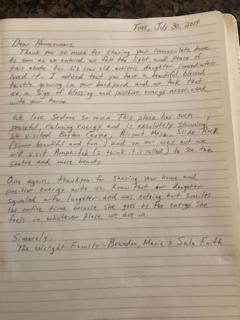 Tues, July 30, 2019
Dear Homeowners,
Thank you so much for sharing your immaculate home.
As soon as we entered we felt the light and peace of
your abode. Our six year old autistic daughter immediately
loved it. I noticed that you have a beautiful blessed
growing in your backyard and we took that
as a sign of blessing and positive energy associated
with your home.
We love Sedona so much. This place has such
peaceful, calming energy and is absolutely stunning.
We visited Slide Rock
(some beautiful and fun) and on our way out we
will visit Amphitheater (I think it's called) to see the
stupa and more beauty.
Once again, thank you for sharing your home and
positive energy with us. Know that our daughter
squealed with laughter and was nothing but smiles
the entire time because she goes by the energy she
feels in whatever place we are in.
Sincerely,
The Wright Family - Brandon, Marie & Sala Faith